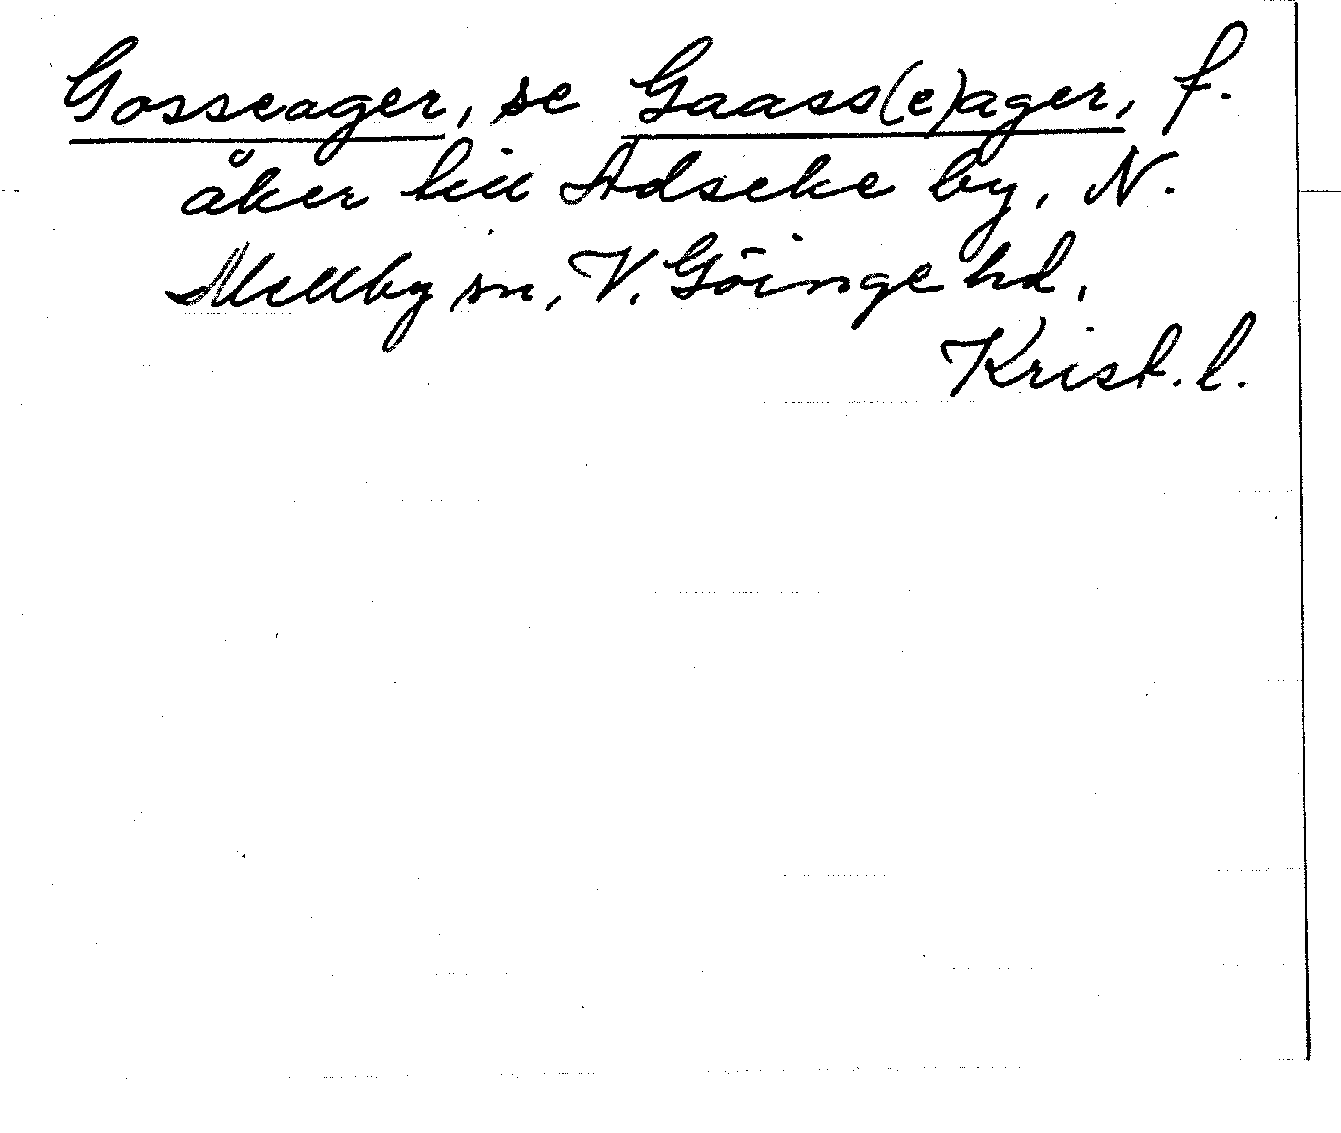 Gosseager, se Gaass(e)ager, f.
åker till Adseke by, N.
Mellby sn, V. Göinge hd,
Krist. l.